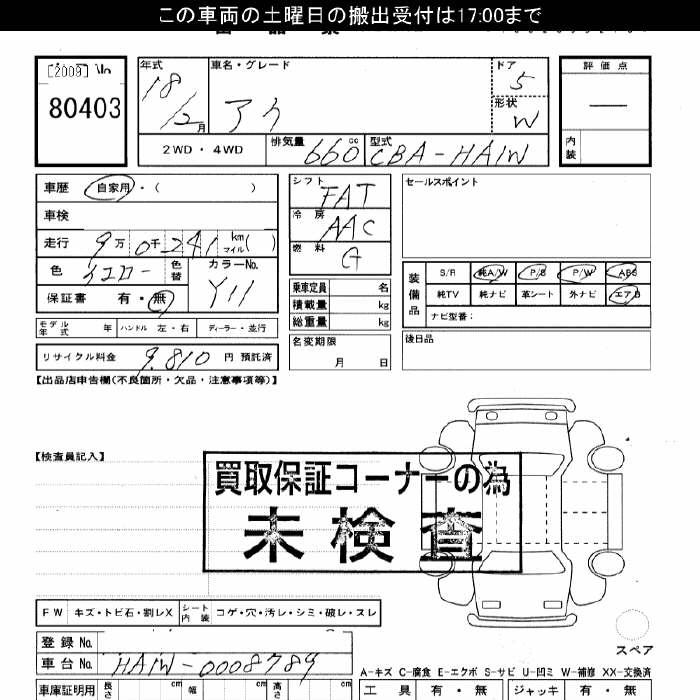 この車両の土曜日の搬出受付は17:00まで
[2009] No
80403
年式
18
12月
車名・グレード
アイ
ドア
5
形状
W
評価点
内装
2WD・4WD
排気量 660 cc
型式 CBA-HA1W
車歴 自家用・( )
車検
走行 9万0千241 km マイル( )
色 イエロー 色替 カラーNo. Y11
保証書 有・無
モデル年式 年 ハンドル 左・右 ディーラー・並行
リサイクル料金 9,810 円 預託済
シフト FAT
冷房 AAC
燃料 G
乗車定員 名
積載量 kg
総重量 kg
名変期限
月 日
セールスポイント
装備品
S/R 純A/W P/S P/W ABS
純TV 純ナビ 革シート 外ナビ エアB
ナビ型番:
後日品
【出品店申告欄(不良箇所・欠品・注意事項等)】
【検査員記入】
買取保証コーナーの為
未検査
FW キズ・トビ石・割レX シート内装 コゲ・穴・汚レ・シミ・破レ・スレ
スペア
登録 No.
車台 No. HA1W-0008789
A-キズ C-腐食 E-エクボ S-サビ U-凹ミ W-補修 XX-交換済
車庫証明用 長さ cm 幅 cm 高さ cm
工具 有・無 ジャッキ 有・無